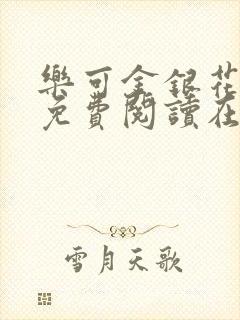 樂可金銀花
免費閱讀在
雪月天歌